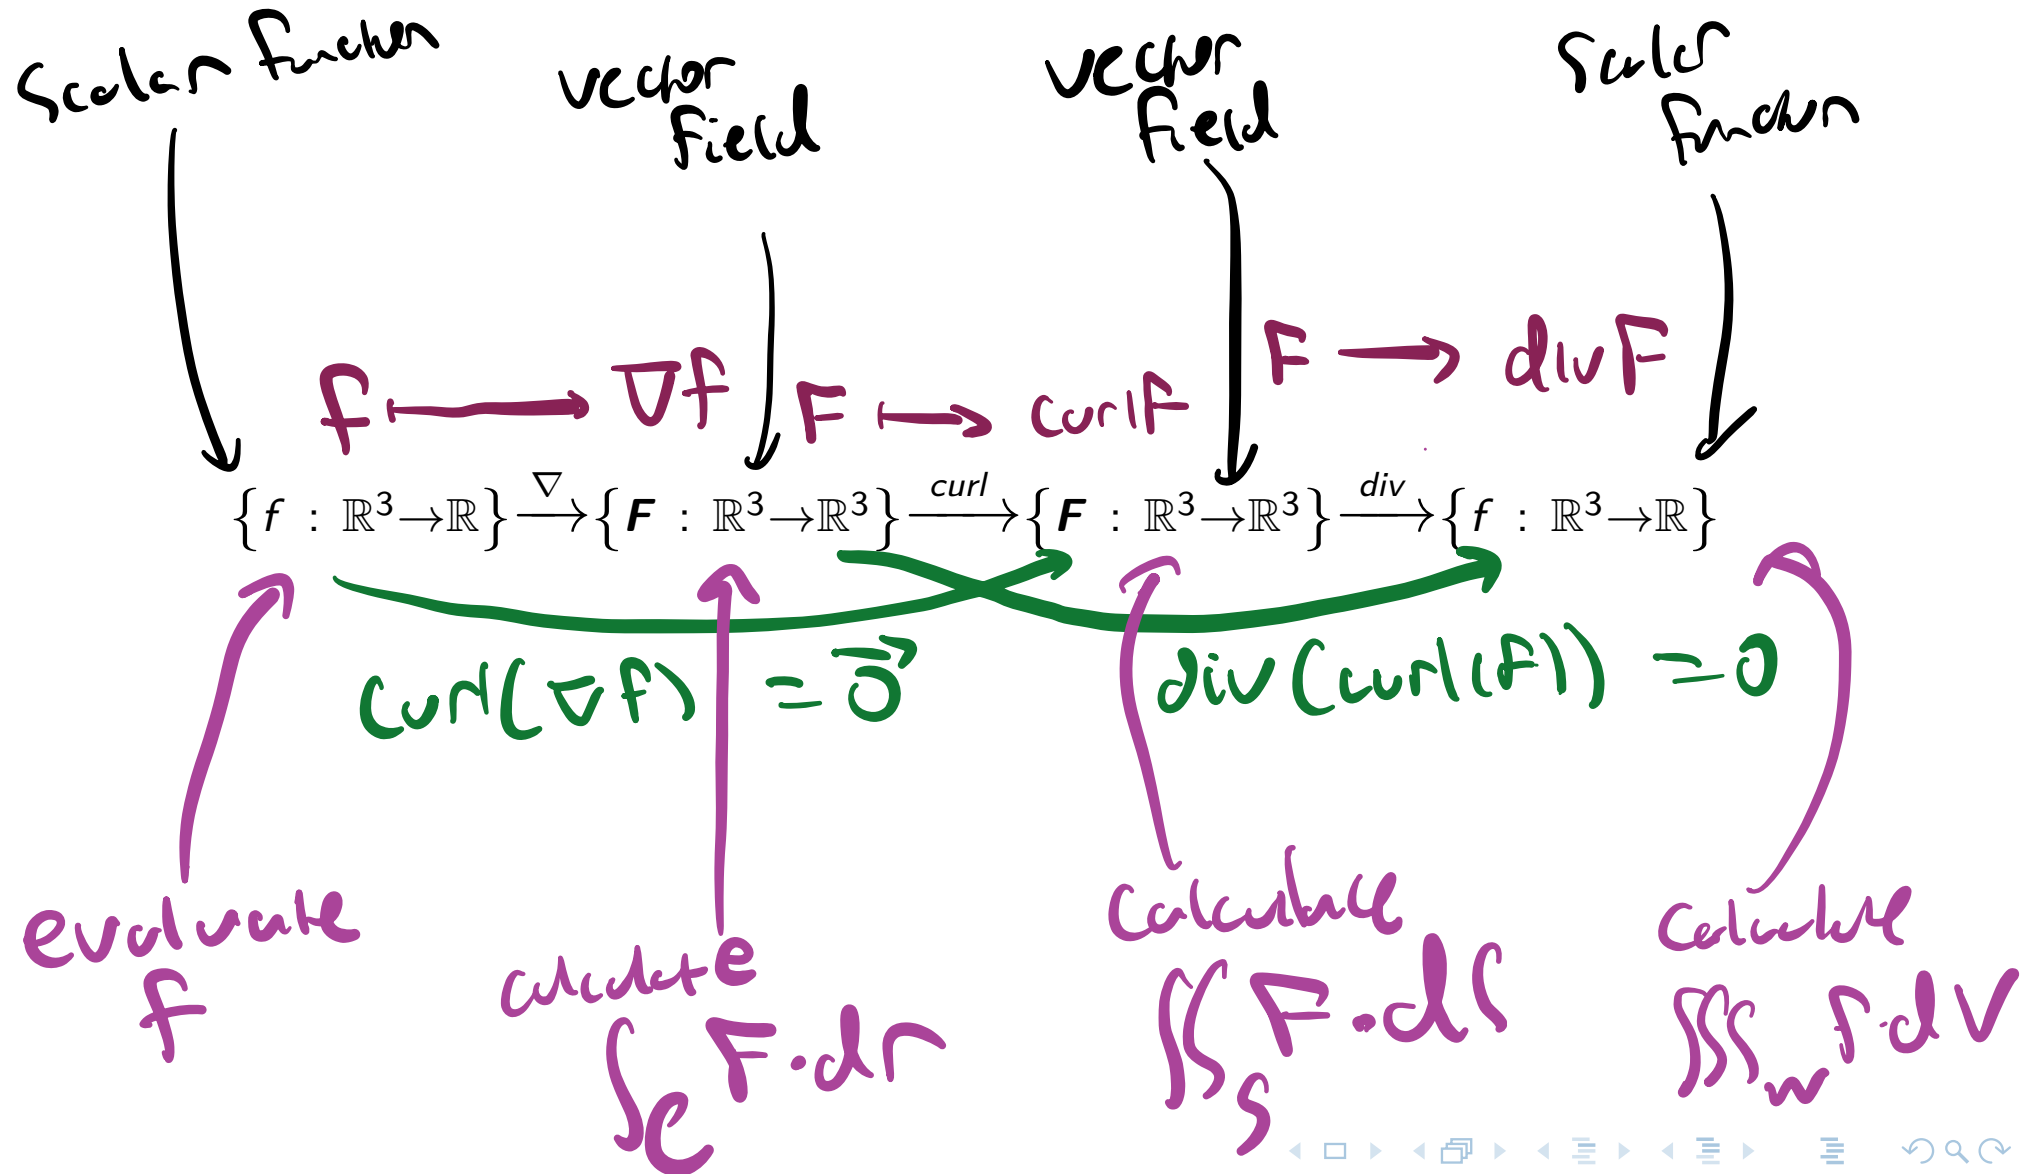 Scalar function
vector field
vector field
Scalar function
f ⟼ ∇f
F ⟼ curl F
F ⟶ div F
{f : ℝ³→ℝ} —∇→ {F : ℝ³→ℝ³} —curl→ {F : ℝ³→ℝ³} —div→ {f : ℝ³→ℝ}
curl(∇f) = 0⃗
div(curl(F)) = 0
evaluate
f
calculate
∫_C F·dr
Calculate
∬_S F·dS
Calculate
∭_W f·dV